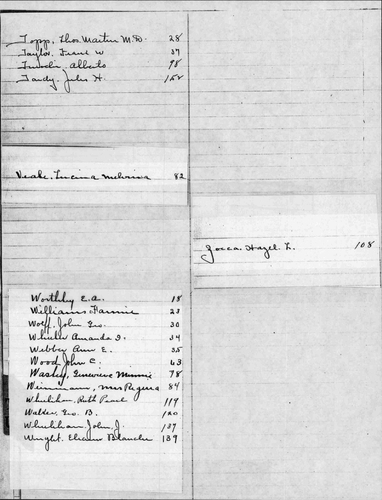 Topp, Thos. Martin M.D. 28
Taylor, Frank W 37
Alberto 98
Tandy, Jules H. 152
Veale, Lucina Melvina 82
Zocca, Hazel L. 108
Worthley E.A. 18
Williams, Fannie 23
Wolf, John Geo. 30
Wheeler Amanda J. 34
Webber Ann E. 35
Wood, John C. 63
Genevieve Minnie 78
Weinmann, Mrs Regina 84
Whelihan, Ruth Pearl 119
Walder, Geo. B. 120
John J. 137
Wright, Eleanor Blanche 139